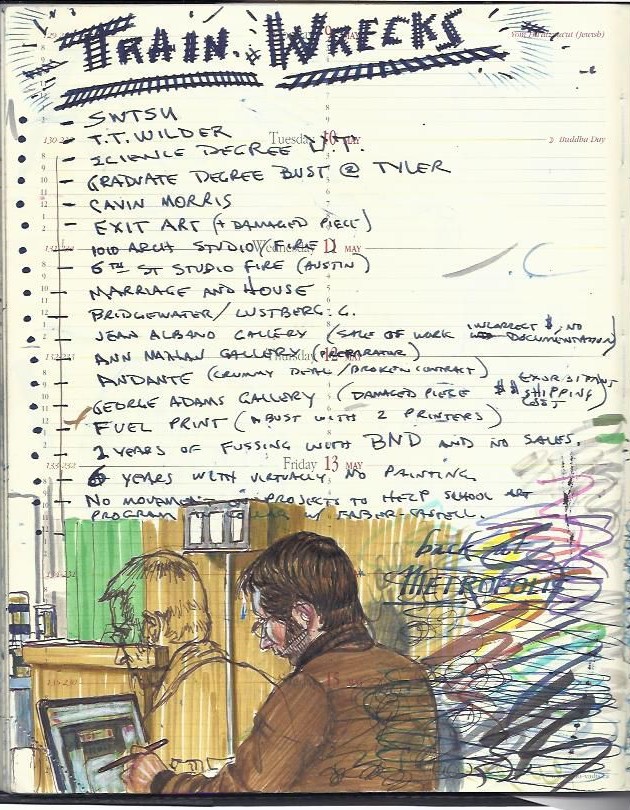 TRAIN WRECKS
Yom Hazazmaut (Jewish)
- SWTSU
- T.T. WILDER
130-235 Tuesday 10 MAY Buddha Day
- SCIENCE DEGREE U.T.
- GRADUATE DEGREE BUST @ TYLER
- CAVIN MORRIS
- EXIT ART (+ DAMAGED PIECE)
Wednesday 11 MAY
- 1010 ARCH STUDIO/FIRE
- 6TH ST STUDIO FIRE (AUSTIN)
- MARRIAGE AND HOUSE
BRIDGEWATER/LUSTBERG. G.
JEAN ALBANO GALLERY (SALE OF WORK INCORRECT $, NO DOCUMENTATION)
Thursday 12 MAY
ANN NATHAN GALLERY (PREPARATOR)
ANDANTE (CRUMMY DEAL/BROKEN CONTRACT)
GEORGE ADAMS GALLERY (DAMAGED PIECE $$ EXORBITANT SHIPPING COST)
FUEL PRINT (A BUST WITH 2 PRINTERS)
2 YEARS OF FUSSING WITH BND AND NO SALES.
133-232 Friday 13 MAY
6 YEARS WITH VIRTUALLY NO PAINTING
NO MOVEMENT PROJECTS TO HELP SCHOOL ART
PROGRAM W/ FABER-CASTELL.
back at
METROPOLIS